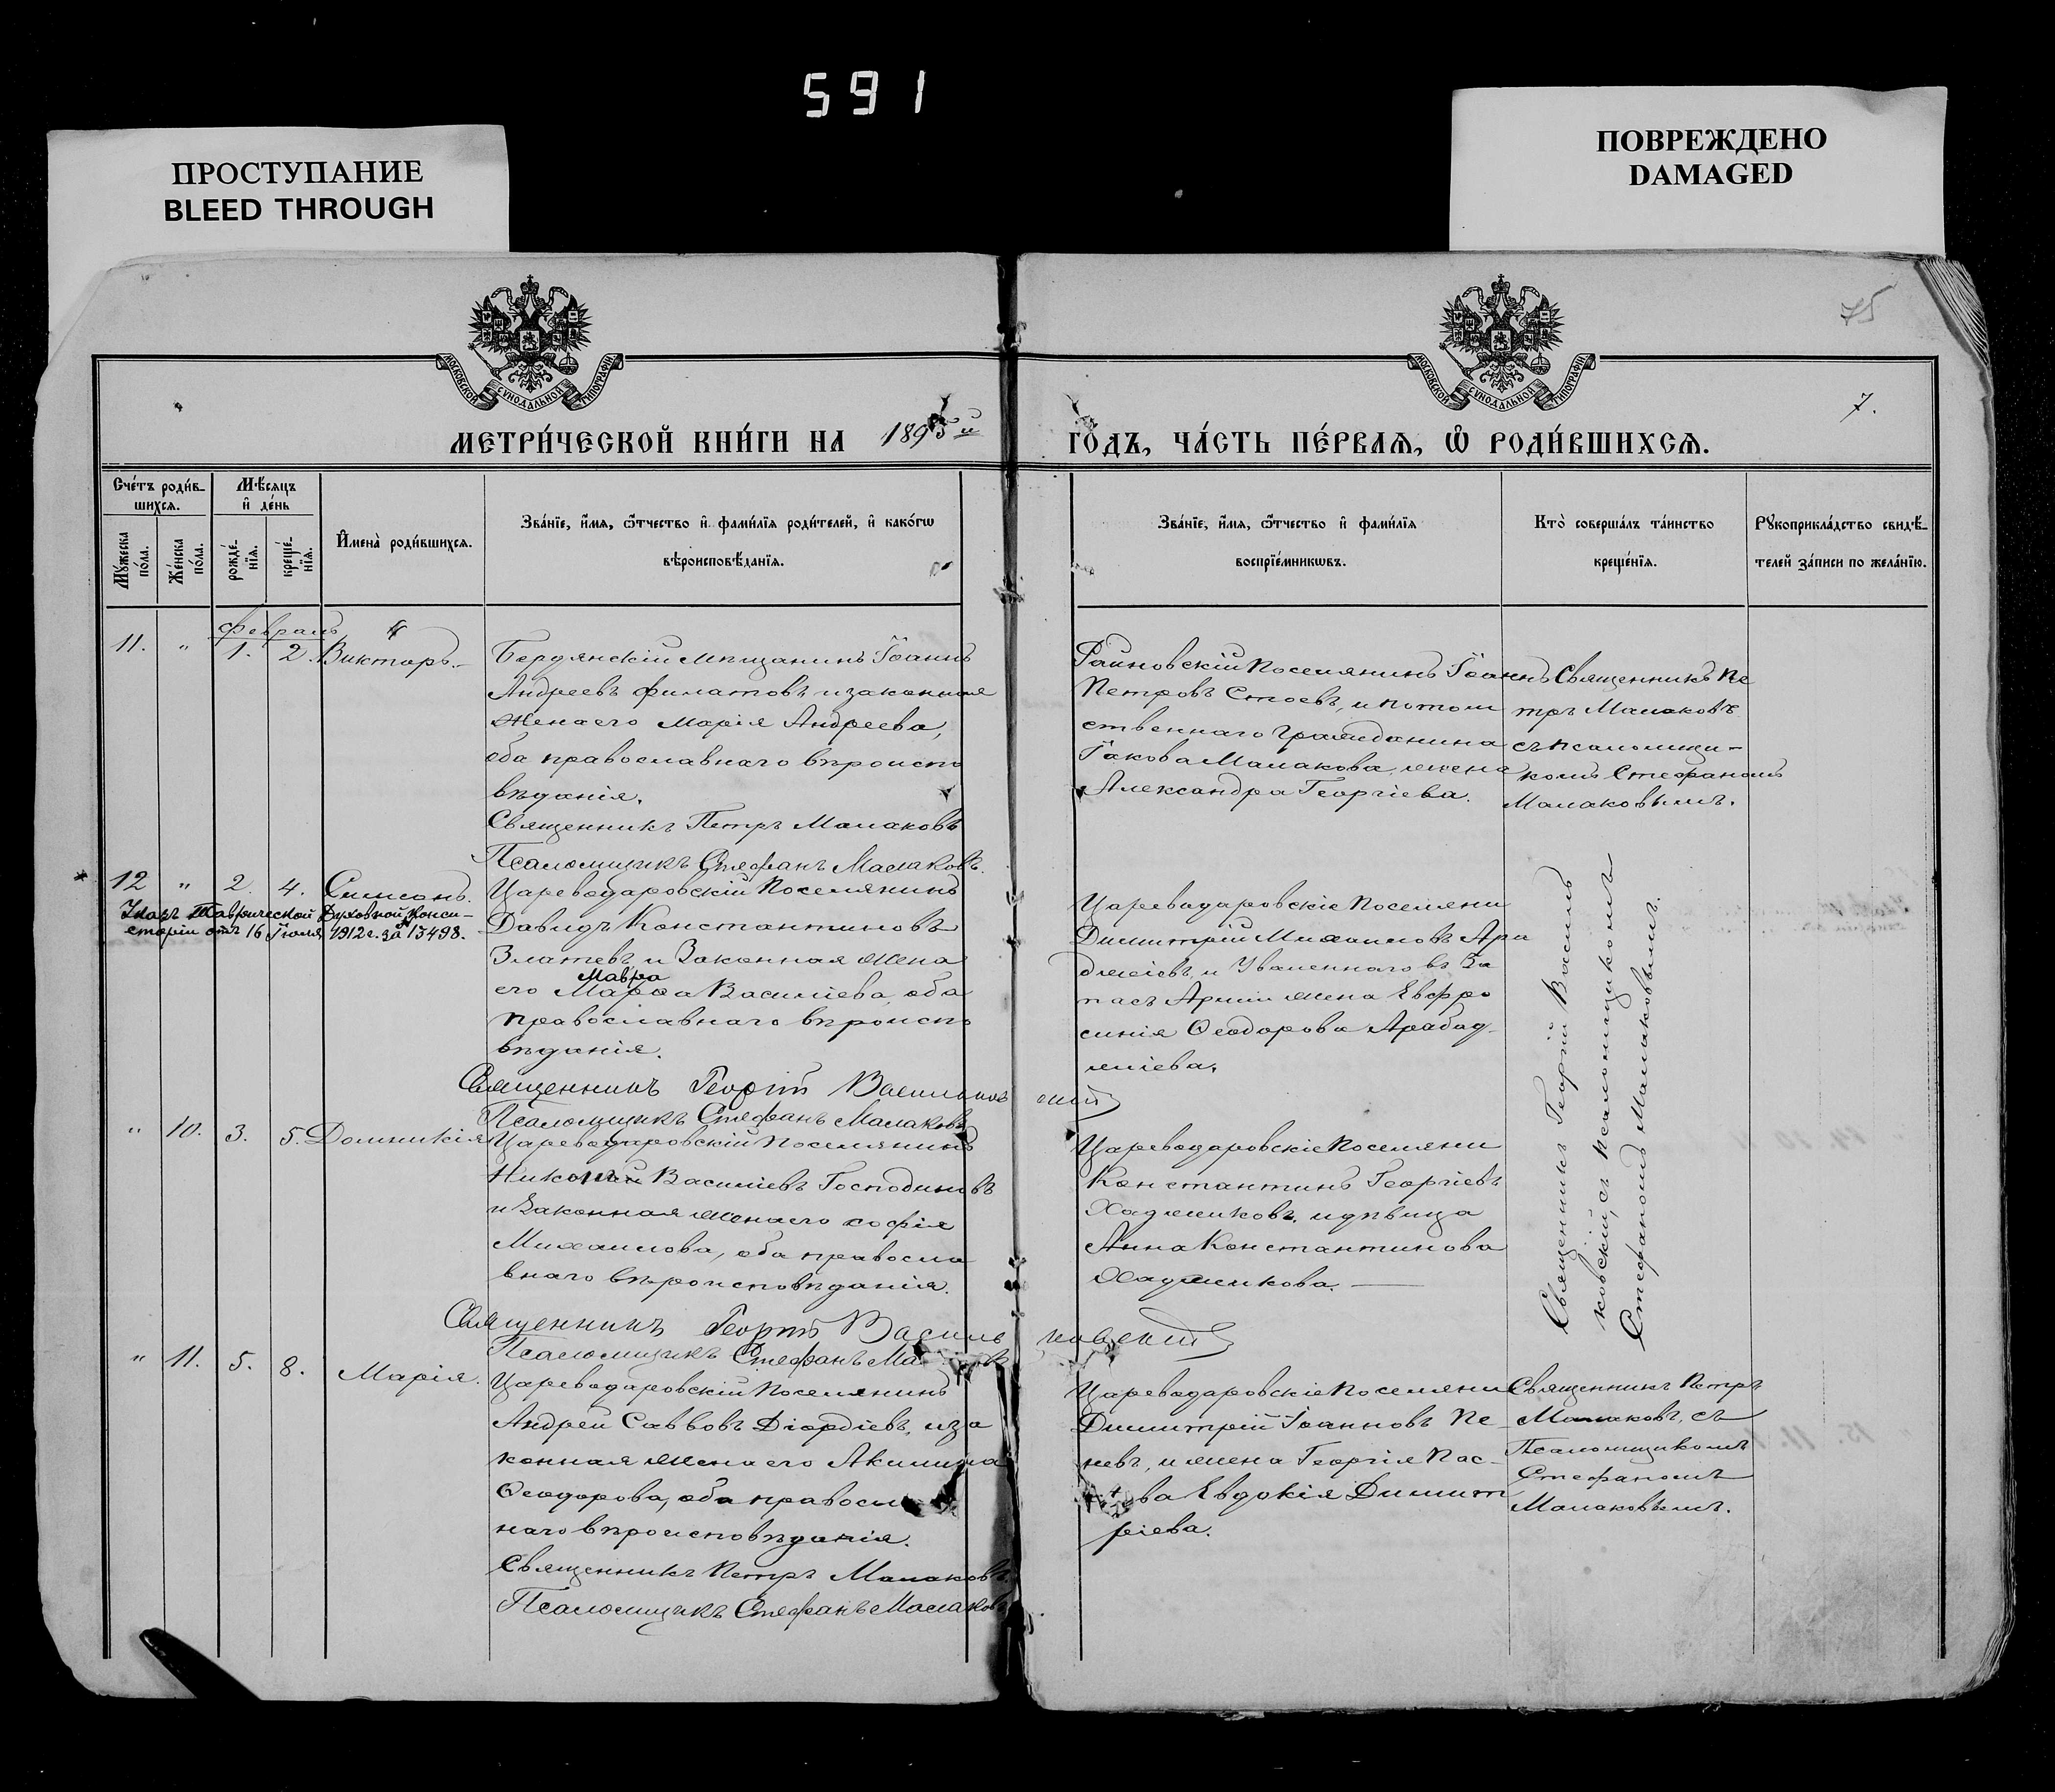 591
ПРОСТУПАНИЕ
BLEED THROUGH
ПОВРЕЖДЕНО
DAMAGED
75
7.
МОСКОВСКОЙ СѴНОДАЛЬНОЙ ТИПОГРАФІИ
МОСКОВСКОЙ СѴНОДАЛЬНОЙ ТИПОГРАФІИ
МЕТРИ́ЧЕСКОЙ КНИ́ГИ НА 1895й
ГО́ДЪ, ЧА́СТЬ ПЕ́РВАЯ, Ѡ РОДИ́ВШИХСЯ.
Сче́тъ роди́в-
шихся.
Мѣ́сяцъ
и де́нь
Мꙋ́жеска
по́ла.
Же́нска
по́ла.
рожде́-
нїя.
креще́-
нїя.
Имена̀ роди́вшихся.
Зва́нїе, и́мя, ѻ́тчество и фами́лїя роди́телей, и како́гѡ
вѣроисповѣ́данїя.
Зва́нїе, и́мя, ѻ́тчество и фами́лїя
воспрїе́мникѡвъ.
Кто̀ соверша́лъ та́инство
креще́нїя.
Рꙋкоприкла́дство свидѣ́-
телей за́писи по жела́нїю.
Февраль
11. " 1. 2. Викторъ.
Бердянскій мѣщанинъ Іоаннъ
Андреевъ Филатовъ и законная
жена его Марія Андреева,
оба православнаго вѣроиспо
вѣданія.
Священникъ Петръ Малаковъ
Псаломщикъ Стефанъ Малаковъ.
Райновскій поселянинъ Іоаннъ
Петровъ Стоевъ, и потом
ственнаго гражданина
Іакова Малакова, жена
Александра Георгіева.
Священникъ Пе
тръ Малаковъ
съ псаломщи-
комъ Стефаномъ
Малаковымъ.
12 " 2. 4. Симсонъ.
Указъ Таврической Духовной Конси-
сторіи отъ 16 Іюля 1912 г. за 13498.
Цареводаровскій поселянинъ
Давидъ Константиновъ
Златевъ и законная жена
Мавра
его Марѳа Василіева, оба
православнаго вѣроиспо
вѣданія.
Священникъ Георгій Васильковскій
Псаломщикъ Стефанъ Малаковъ
Цареводаровскіе поселяни
Димитрій Михаиловъ Ара
джіевъ, и уволеннаго въ За
пасъ Арміи жена Евфро
синія Ѳеодорова Арабад-
жіева.
Священникъ Георгій Василь
ковскій, съ псаломщикомъ
Стефаномъ Малаковымъ.
" 10. 3. 5. Домникія
Цареводаровскій поселянинъ
Николай Василіевъ Господиновъ
и законная жена его Софія
Михаилова, оба правосла
внаго вѣроисповѣданія.
Священникъ Георгій Васильковскій
Псаломщикъ Стефанъ
Цареводаровскіе поселяни
Константинъ Георгіевъ
Хаджиковъ, и дѣвица
Анна Константинова
Хаджикова.
" 11. 5. 8. Марія.
Цареводаровскій поселянинъ
Андрей Саввовъ Діордіевъ, и за
конная жена его Акилина
Ѳеодорова, оба правосла
наго вѣроисповѣданія.
Священникъ Петръ Малаковъ.
Псаломщикъ Стефанъ Малаковъ
Цареводаровскіе поселяни
Димитрій Іоанновъ Пе
невъ, и жена Георгія Пас-
ва Евдокія Димит
ріева.
Священникъ Петръ
Малаковъ, съ
Псаломщикомъ
Стефаномъ
Малаковымъ.